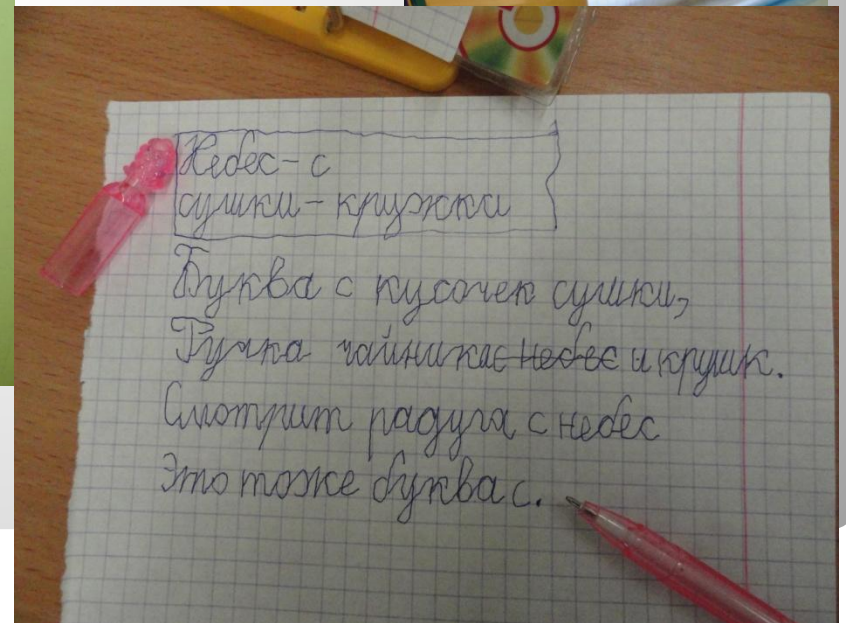 Небес - с
сушки - кружки
Буква с кусочек сушки,
Ручка чайника с небес и крушк.
Смотрит радуга, с небес
Это тоже буква с.